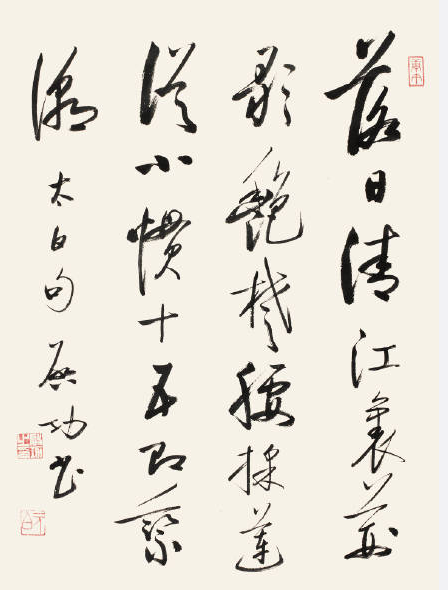 落日清江裏荊
歌艷楚腰採蓮
從小慣十五即乘
潮 太白句 啟功書